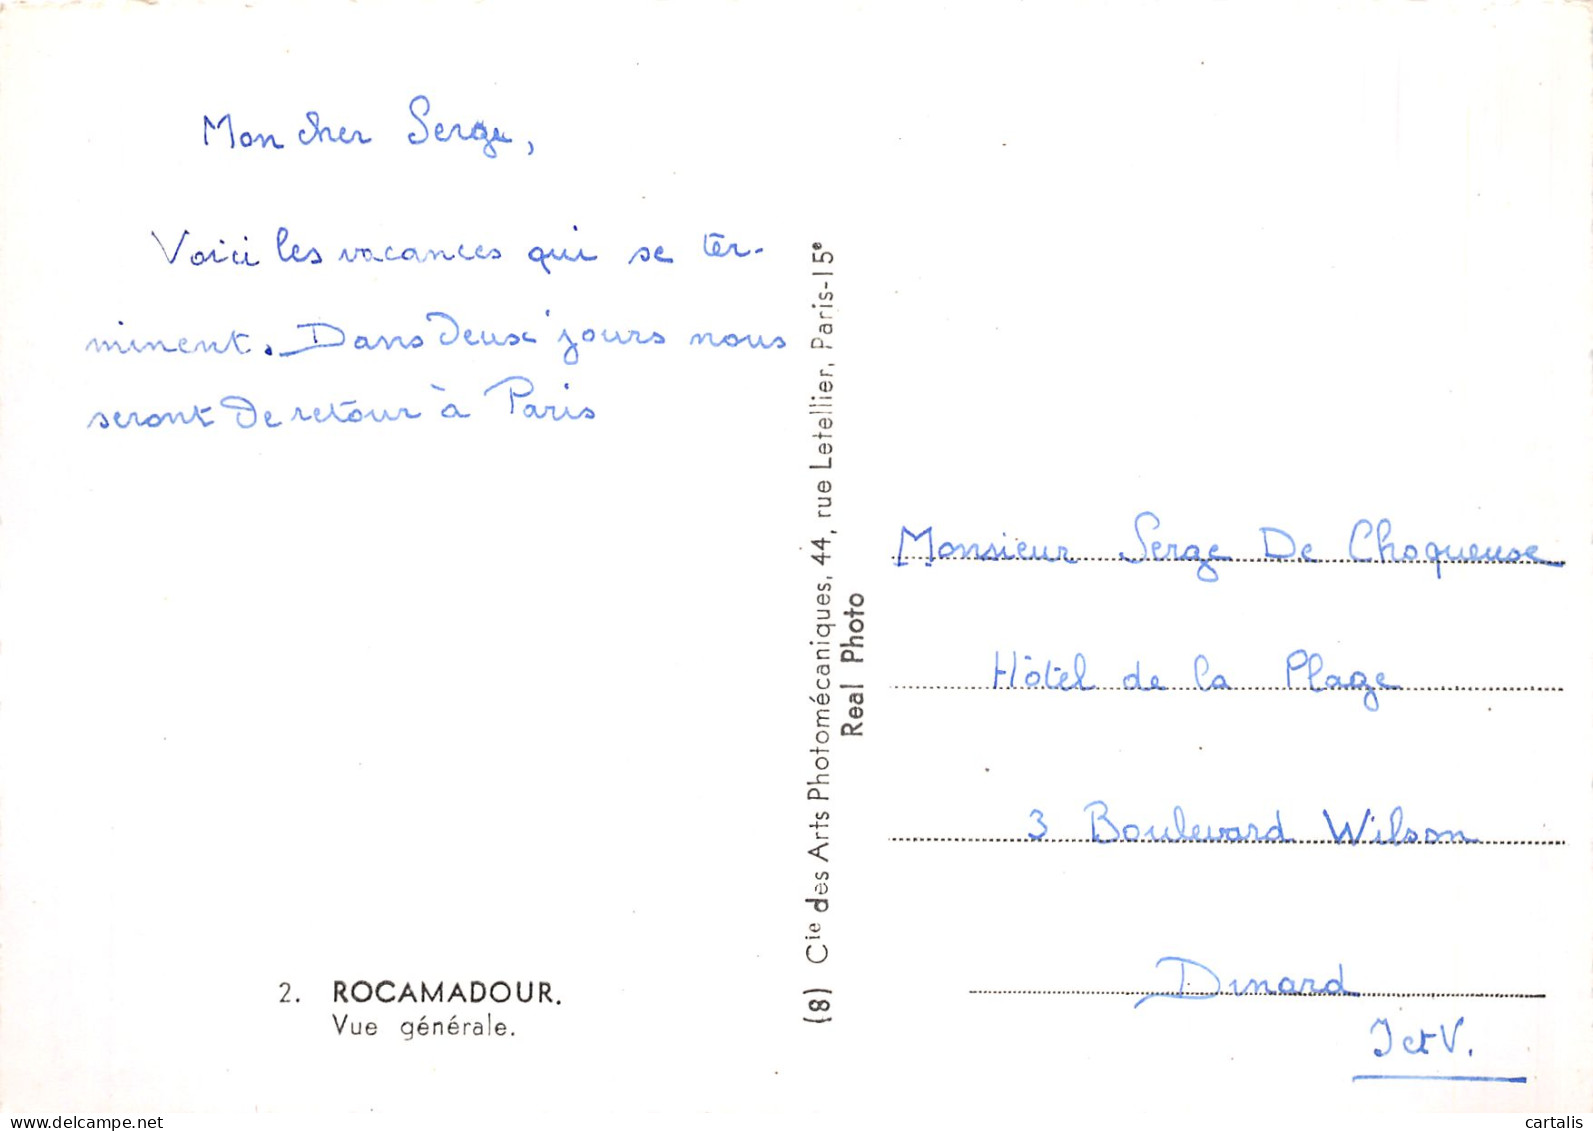 Mon cher Serge,
Voici les vacances qui se ter-
minent. Dans deux jours nous
seront de retour à Paris
2. ROCAMADOUR.
Vue générale.
(8) Cie des Arts Photomécaniques, 44, rue Letellier, Paris-15e
Real Photo
Monsieur Serge De Choqueuse
Hôtel de la Plage
3 Boulevard Wilson
Dinard
I et V.
delcampe.net
cartalis